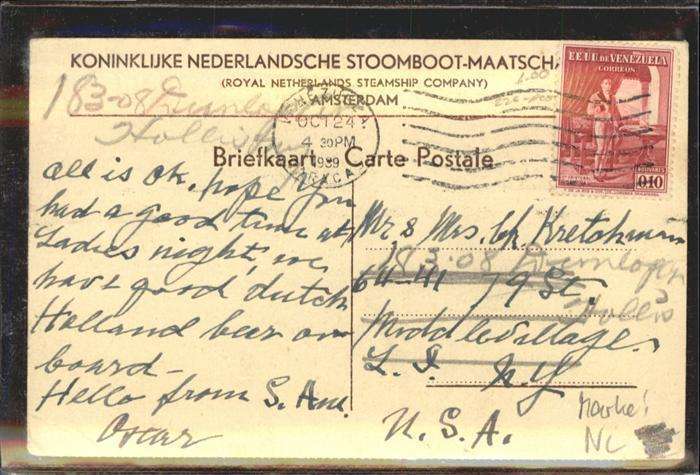 KONINKLIJKE NEDERLANDSCHE STOOMBOOT-MAATSCHA
(ROYAL NETHERLANDS STEAMSHIP COMPANY)
AMSTERDAM
183-08 Dunlop
Hollis
OCT 24
4 30 PM
1939
EE.UU. DE VENEZUELA
CORREOS
BOLIVARES
0.10
Briefkaart Carte Postale
all is ok, hope you
had a good time at
Ladies night, we
have good dutch
Holland beer on
board-
Hello from S. Am.
Oscar
Mr & Mrs. Ch Kretchmann
183-08 Dunlop
64-41 79 St.
Hollis
Middle Village.
L. I. N.Y
U.S.A.
NC